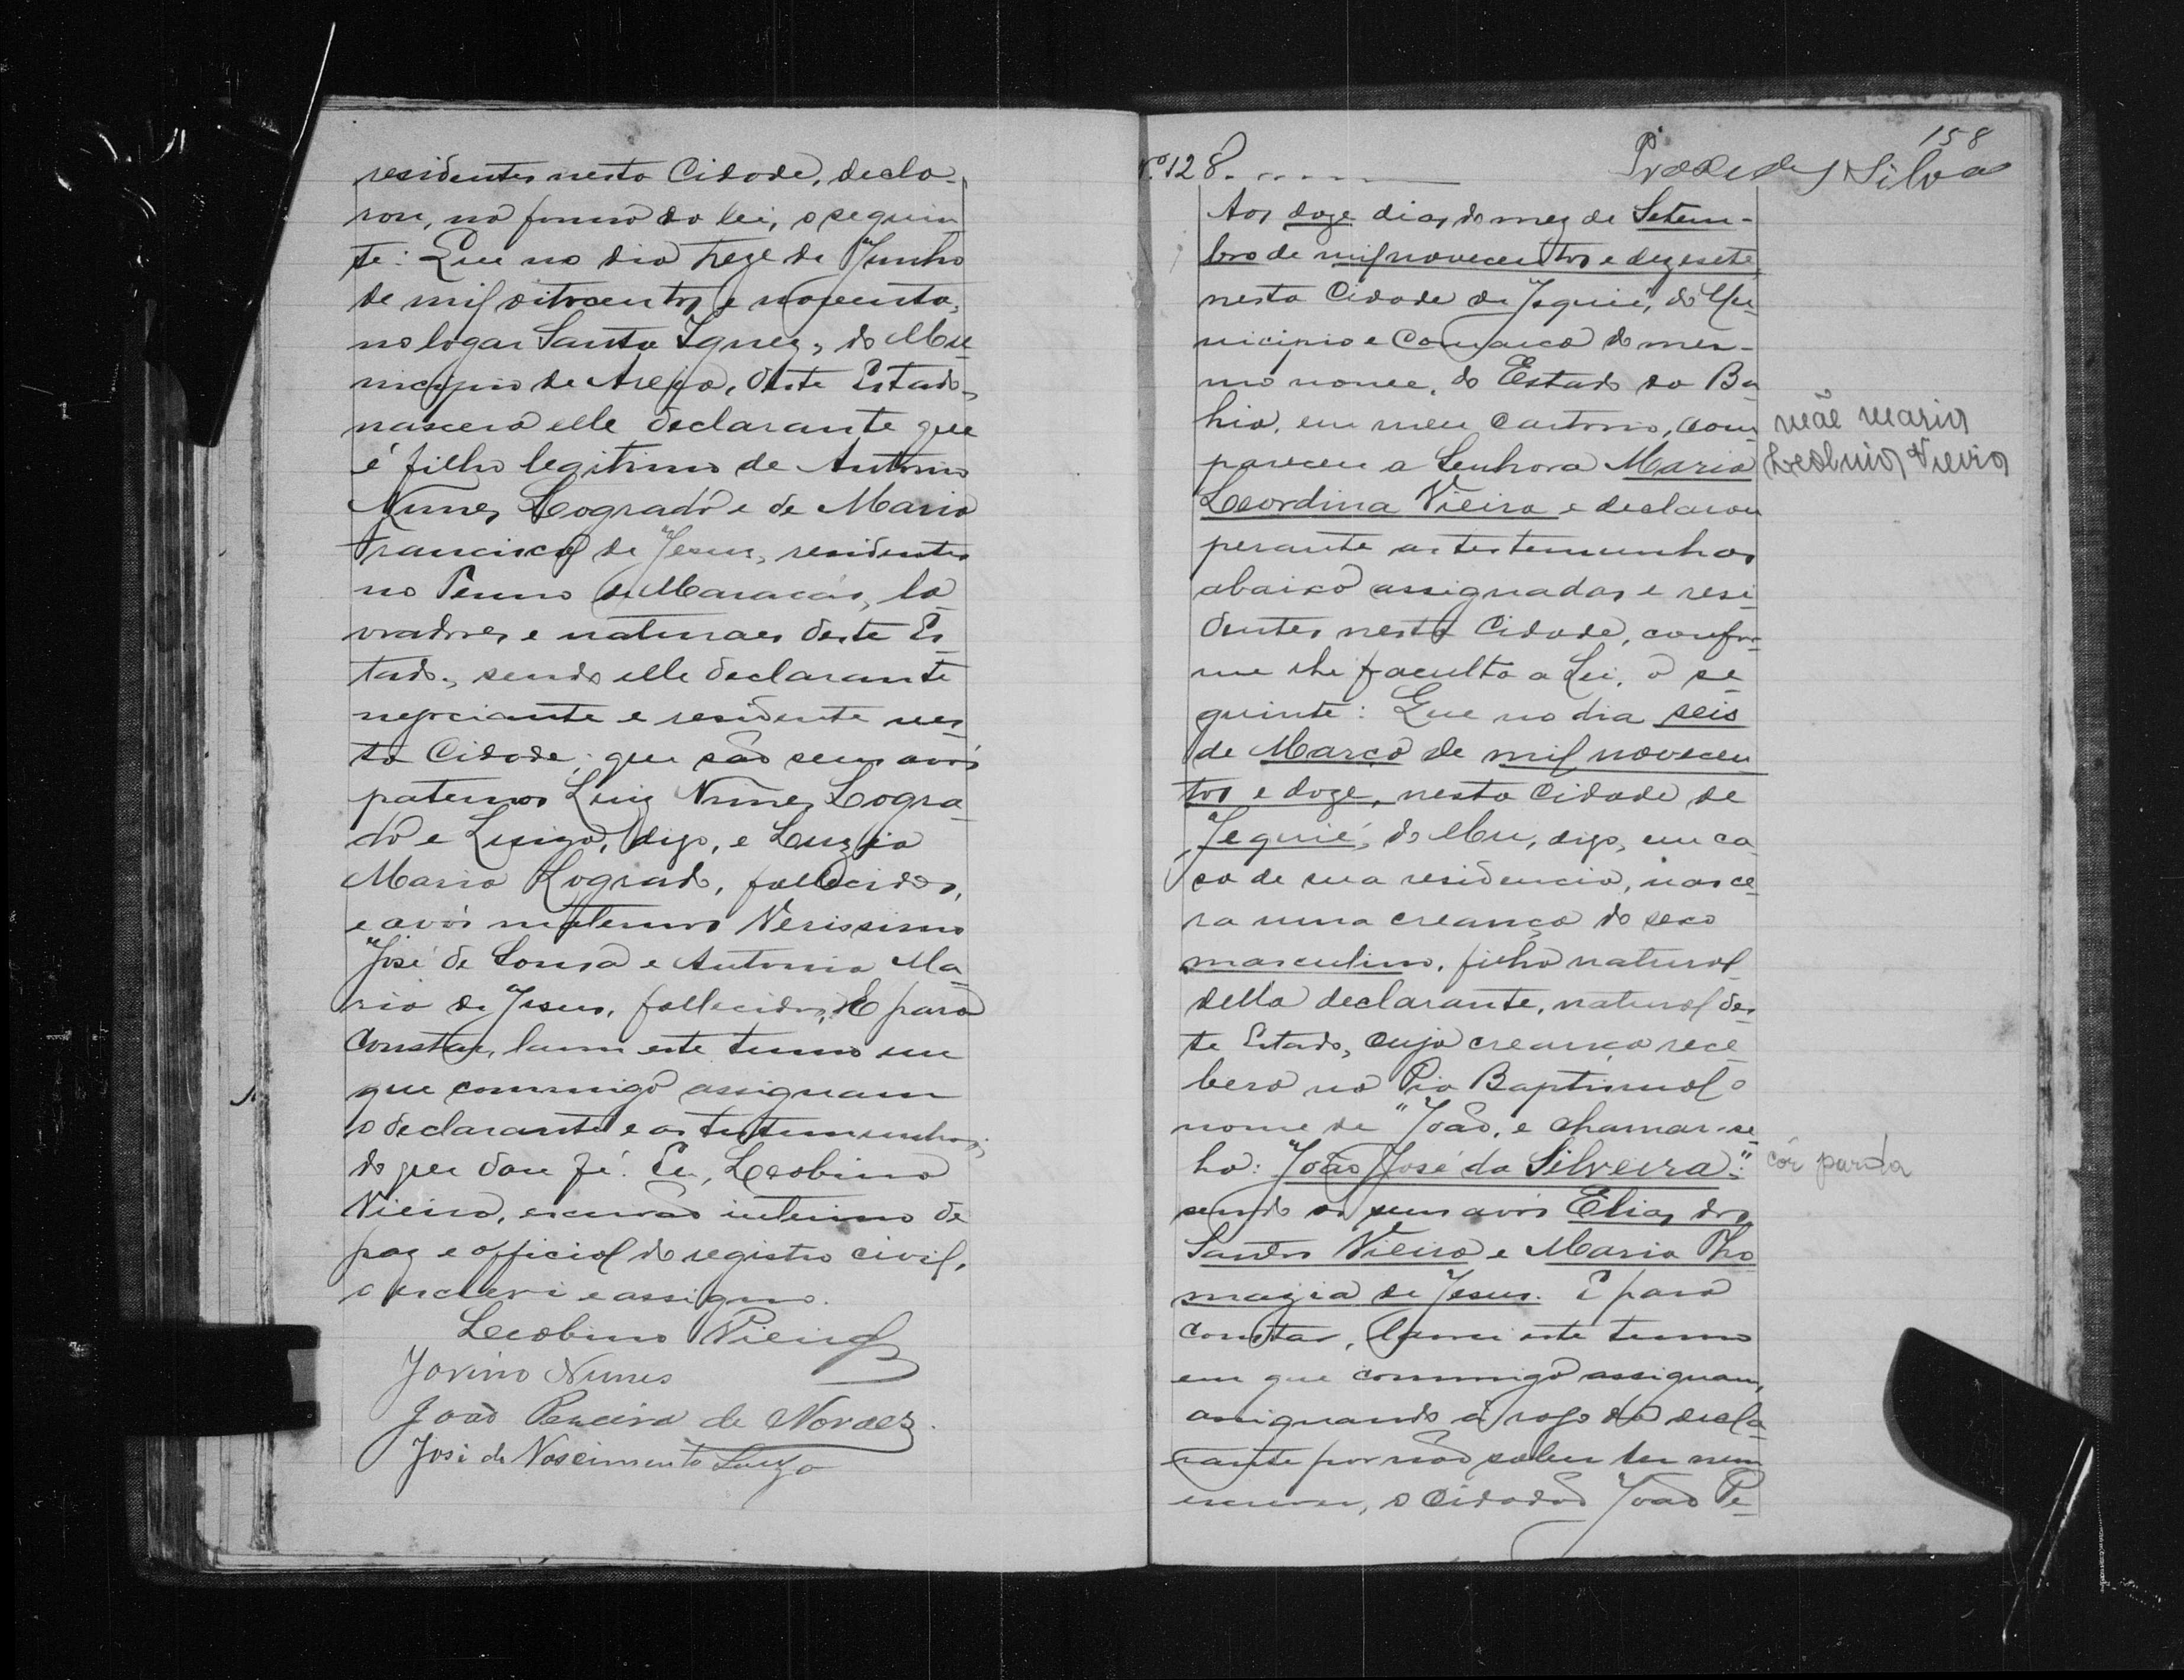 residentes nesta Cidade, decla-
rou, na forma da lei, o seguin
te: Que no dia treze de Junho
de mil oitocentos e noventa,
no logar Santa Ignez, do Mu-
nicipio de Areia, deste Estado,
nascera elle declarante que
é filho legitimo de Antonio
Nunes Lograđo e de Maria
Francisca de Jesus, residentes
no Termo de Maracás, la
vradores e naturaes deste Es-
tado, sendo elle declarante
negociante e residente nes-
ta Cidade; que são seus avós
paternos Luiz Nunes Logra
do e Luiza, digo, e Luzia
Maria Logrado, fallecidos,
e avós maternos Verissimo
José de Sousa e Antonia Ma-
ria de Jesus, fallecidos. E para
Constar, lavrei este termo em
que commigo assignam
o declarante e as testemunhas;
do que dou fé. Eu, Leobino
Vieira, escrivão interino de
paz e official do registro civil,
o escrevi e assigno.
Leobino Vieira
Jovino Nunes
João Pereira de Novaes.
José do Nascimento Souza
158
Nº 128.
Silva
Aos doze dias do mez de Setem-
bro de mil novecentos e dezesete
nesta Cidade de Jequié, do Mu-
nicipio e Comarca do mes-
mo nome, do Estado da Ba
hia, em meu Cartorio, com
pareceu a Senhora Maria
Leordina Vieira e declarou
perante as testemunhas
abaixo assignadas e resi-
dentes nesta Cidade, confor-
me lhe faculta a Lei, o se-
guinte: Que no dia seis
de Março de mil novecen
tos e doze, nesta Cidade de
Jequié, do Mu, digo, em ca
sa de sua residencia, nasce-
ra uma creança do sexo
masculino, filho natural
della declarante, natural des-
te Estado, cuja creança rece-
berá na Pia Baptismal o
nome de "João, e chamar-se-
ha: "João José da Silveira":
sendo os seus avós Elias dos
Santos Vieira e Maria Tho
mazia de Jesus. E para
constar, lavrei este termo
em que commigo assignam,
assignando á rogo da decla-
rante por não saber ler nem
escrever, o Cidadão João Pe-
mãe Maria
Vieira
côr parda